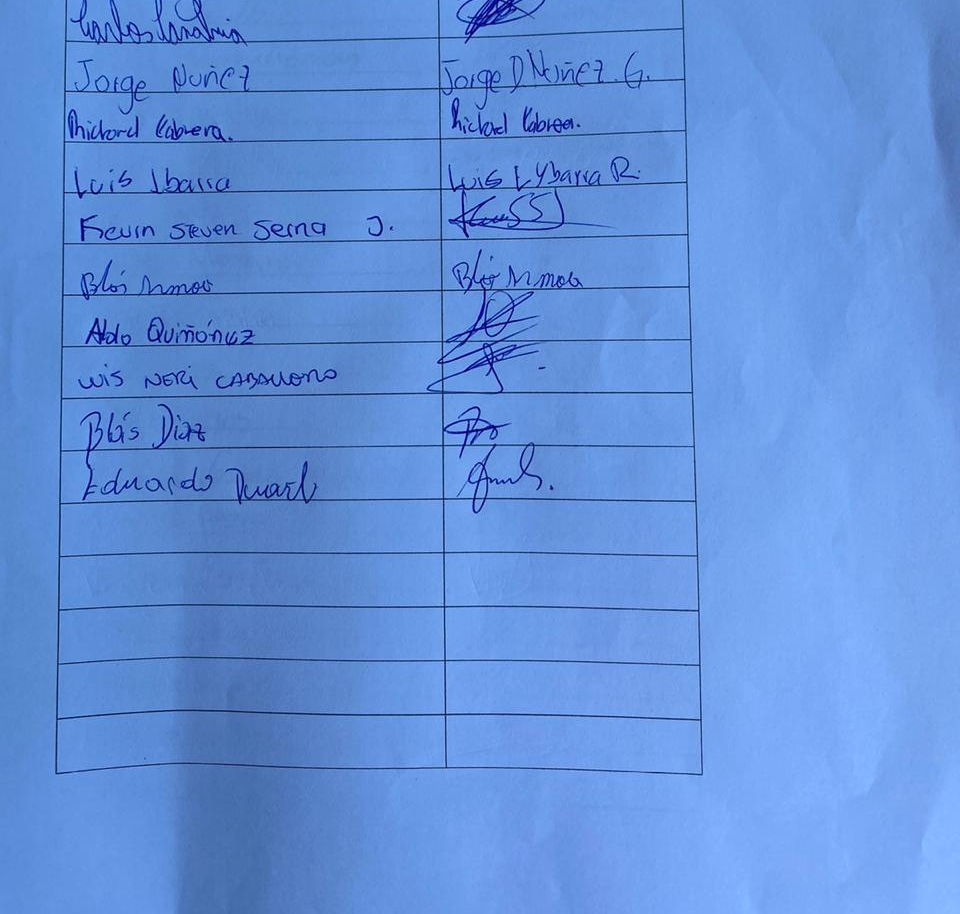 Carlos
Jorge Nuñez Jorge D Nuñez G.
Richard Cabrera. Richard Cabrera.
Luis Ibarra Luis L Ybarra R.
Kevin Steven Serna J.
Blás Blás
Aldo Quiñónez
Luis Neri Caballero
Blás Diaz
Eduardo Duart